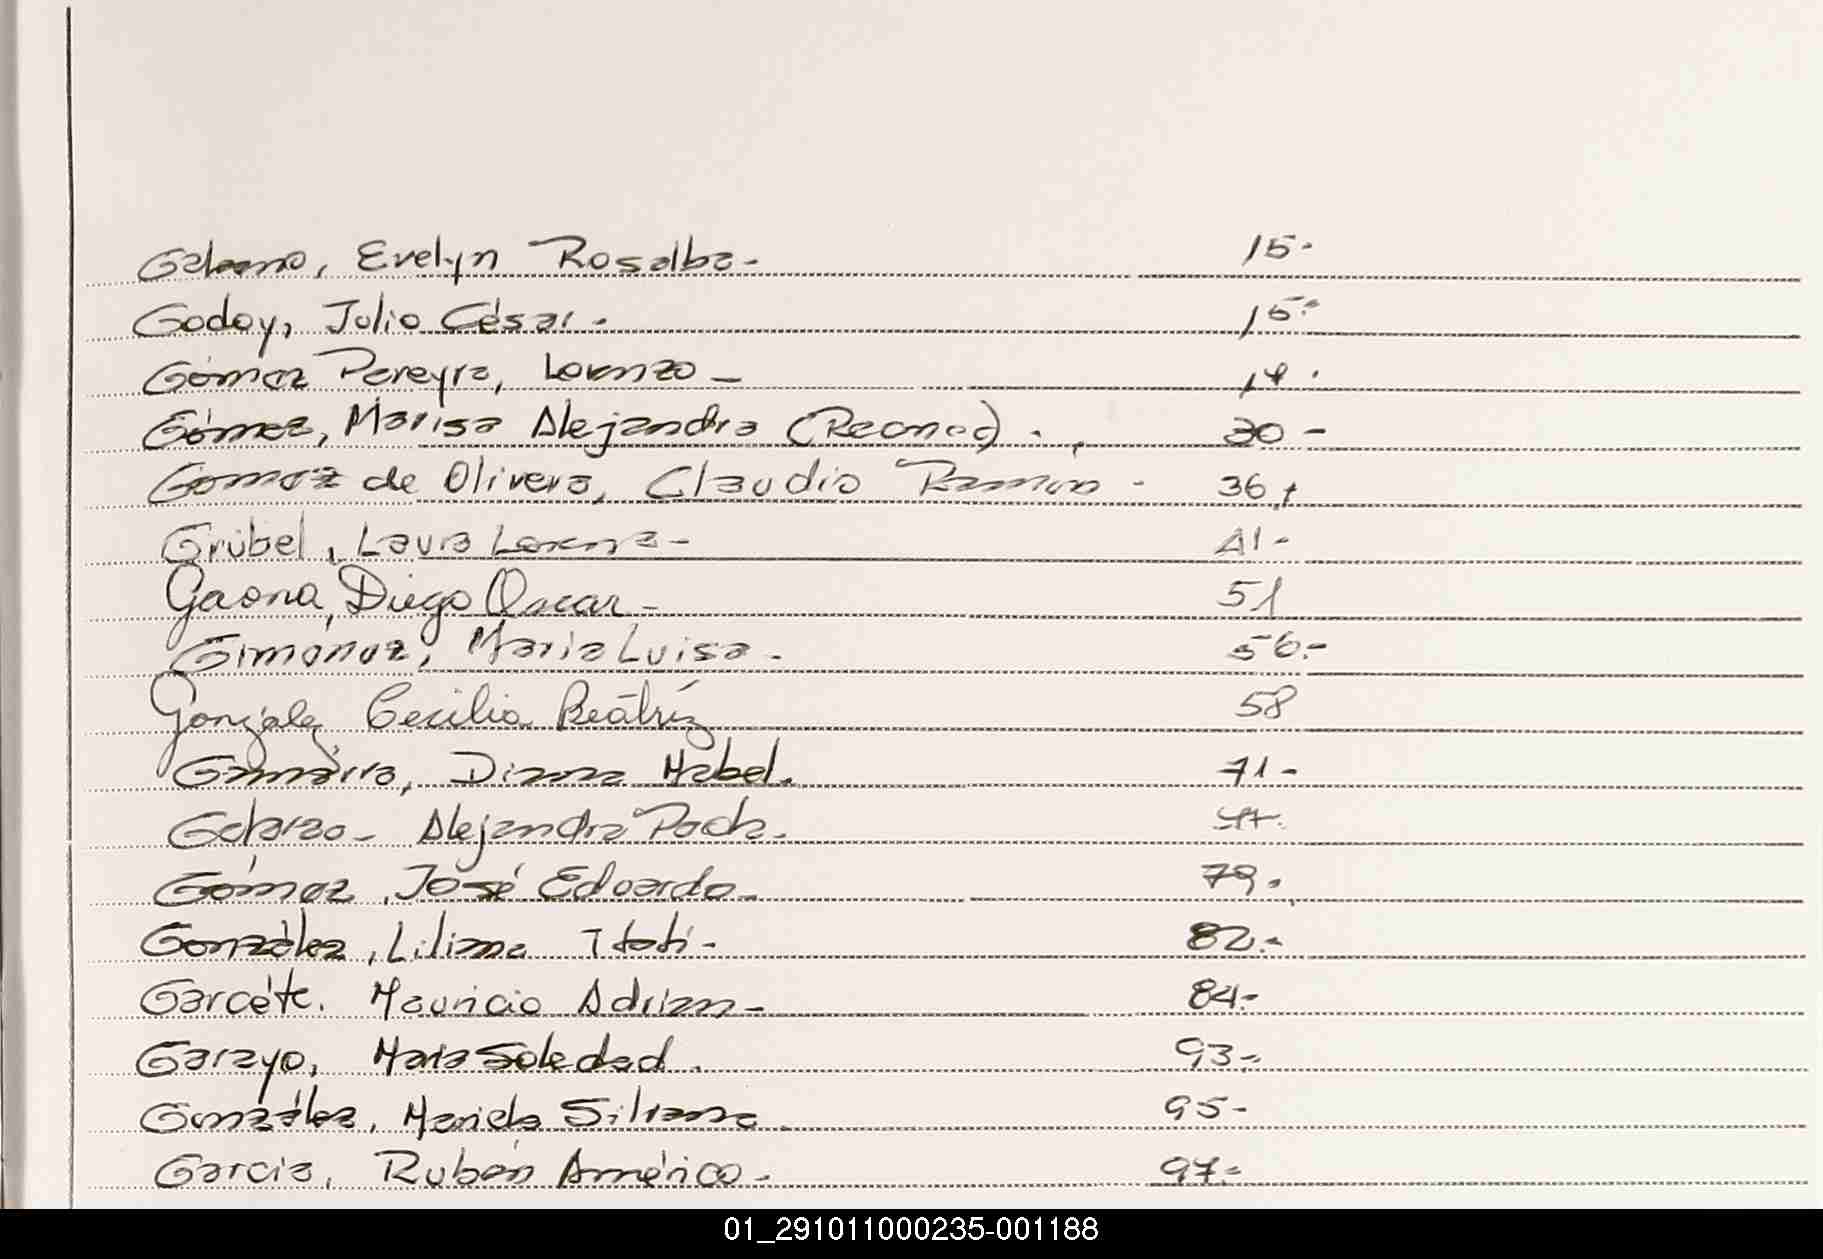 Galeano, Evelyn Rosalba.- 15.-
Godoy, Julio César.- 15.-
Gómez Pereyra, Lorenzo - 14.
Gómez, Marisa Alejandra (Reconoc). 30 -
Gomez de Olivera, Claudio Ramón - 36,
Grübel, Laura Lorena - 41.-
Gaona, Diego Oscar - 51
Giménez, María Luisa. 56.-
Gonzalez Cecilia Beátriz 58
Gamarra, Diana Mabel. 71.-
Alejandra
Gómez, José Eduardo.- 79.
González, Liliana Itatí.- 82.-
Garcéte. Mauricio Adrian.- 84.-
Garayo, Maria Soledad. 93.-
González, Mariela Silvana. 95-
Garcia, Rubén Américo.- 97.-
01_291011000235-001188